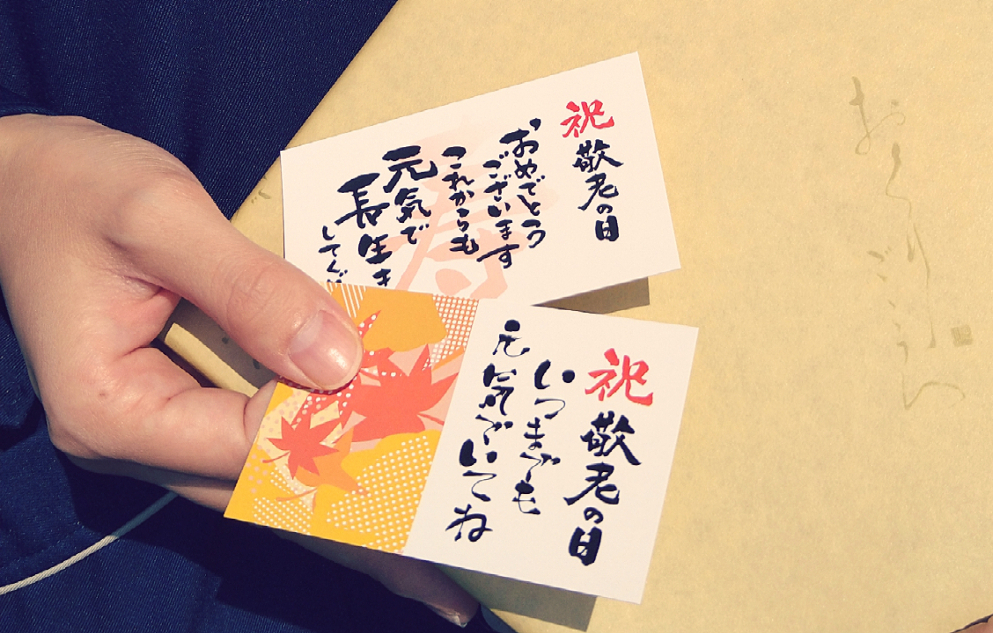 祝
敬老の日
おめでとう
ございます
これからも
元気で
長生き
してく
寿
祝
敬老の日
いつまでも
元気でいてね